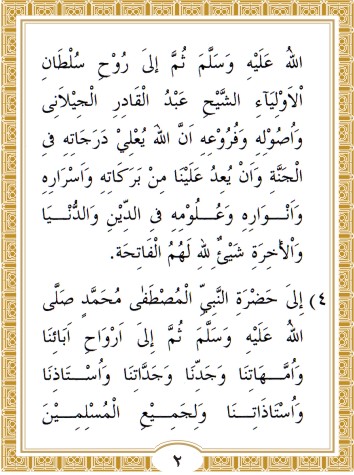 اللهُ عَلَيْهِ وَسَلَّمَ ثُمَّ إِلىَ رُوْحِ سُلْطَانِ
اْلاَوْلِيَآءِ الشَّيْحِ عَبْدُ الْقَادِرِ الْجَيْلاَنِى
وَاُصُوْلِهِ وَفُرُوْعِهِ اَنَّ اللهَ يُعْلِيْ دَرَجَاتِهِ فِى
الْجَنَّةِ وَاَنْ يُعدُ عَلَيْنَا مِنْ بَرَكَاتِهِ وَاَسْرَارِهِ
وَاَنْـــوَارِهِ وَعُـــلُومِهِ فِى الدِّيْنِ وَالدُّنْـــيَا
وَاْلأخِرَةِ شَيْئٌ لِلهِ لَهُمُ الْفَاتِحَة.
٤) إِلىَ حَضْرَةِ النَّبِيِّ الْمُصْطَفٰى مُحَمَّدٍ صَلَّى
اللهُ عَلَيْهِ وَسَلَّمَ ثُمَّ إِلىَ اَرْوَاحِ اَبَائِنَا
وَاُمَّـــهَاتِنَا وَجَدِّنَا وَجَدَّاتِنَا وَاُسْـــتَاذِنَا
وَاُسْتَاذَاتِـــنَا وَلِجَمِيْـــعِ الْمُسْلِمِـــيْنَ
٢